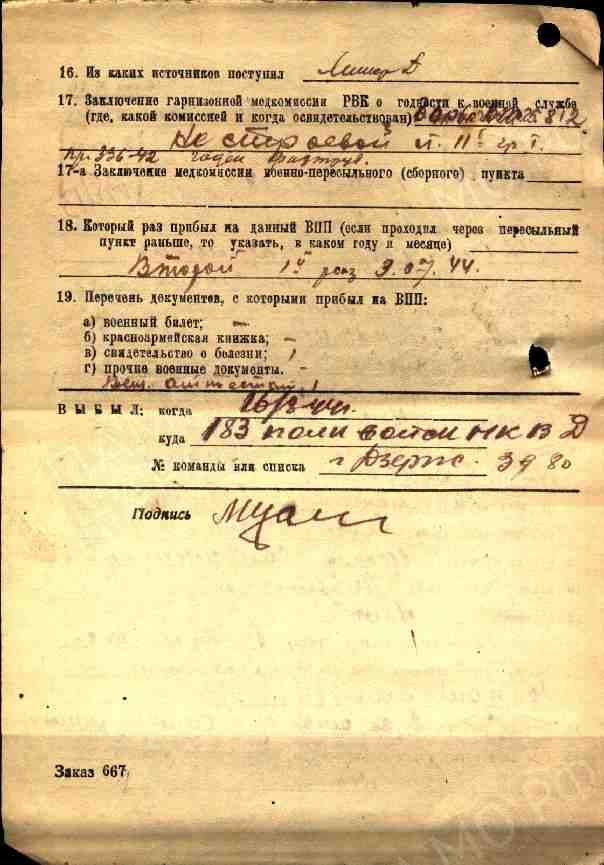 16. Из каких источников поступил
17. Заключение гарнизонной медкомиссии РВК о годности к военной службе
(где, какой комиссией и когда освидетельствован)
Не строевой ст. II гр. I.
пр. 336-42 годен
17-а Заключение медкомиссии военно-пересыльного (сборного) пункта
18. Который раз прибыл на данный ВПП (если проходил через пересыльный
пункт раньше, то указать, в каком году и месяце)
Второй 1й раз 9.07.44.
19. Перечень документов, с которыми прибыл на ВПП:
а) военный билет; —
б) красноармейская книжка; —
в) свидетельство о болезни; 1
г) прочие военные документы. -
Вещ. аттестат. 1
ВЫБЫЛ: когда 16/8 44г.
куда 183 полк войск НКВД
№ команды или списка г Дзерж. 3980
Подпись
Заказ 667
МО РФ